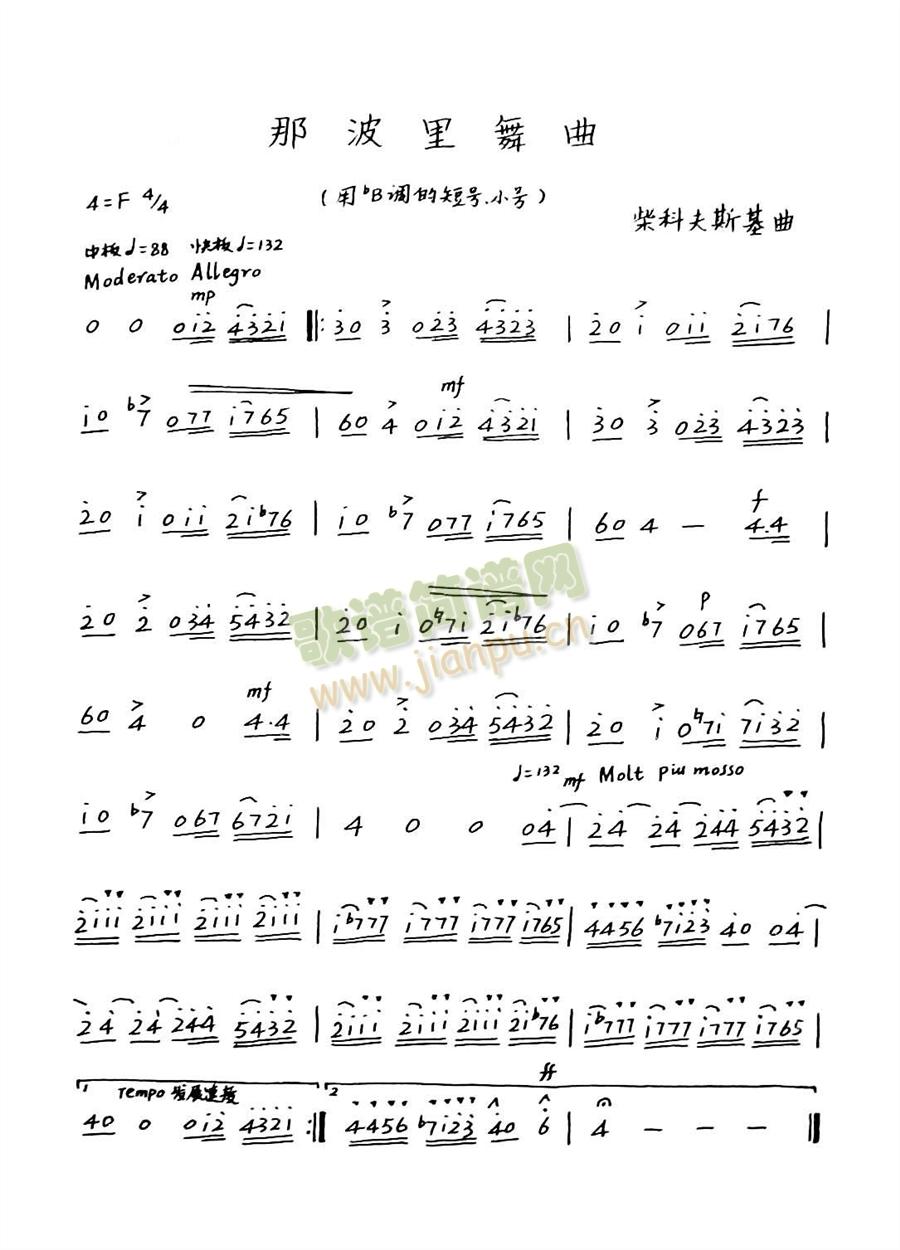 那波里舞曲
4=F 4/4
(用bB调的短号、小号)
柴科夫斯基曲
中板♩=88 快板♩=132
Moderato Allegro
mp
0 0 012 4321 ‖: 30 3 023 4323 | 20 1 011 2176 |
mf
10 b7 077 1765 | 60 4 012 4321 | 30 3 023 4323 |
f
20 1 011 21b76 | 10 b7 077 1765 | 60 4 — 4.4
歌谱简谱网
www.jianpu.cn
p
20 2 034 5432 | 20 1 0♮71 21b76 | 10 b7 067 1765 |
mf
60 4 0 4.4 | 20 2 034 5432 | 20 1 0♮71 7132 |
♩=132 mf Molt piu mosso
10 b7 067 6721 | 4 0 0 04 | 24 24 244 5432 |
2111 2111 2111 2111 | 1b777 1777 1777 1765 | 4456 b7123 40 04 |
24 24 244 5432 | 2111 2111 2111 21b76 | 1b777 1777 1777 1765 |
1 Tempo 2 ff
40 0 012 4321 :‖ 4456 b7123 40 6 | 4 — — — ‖